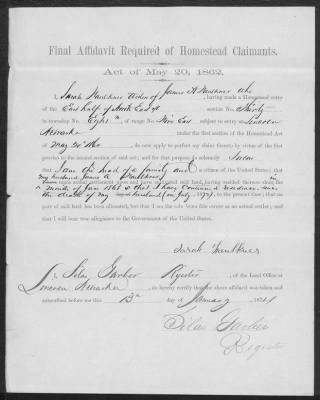 Final Affidavit Required of Homestead Claimants.
Act of May 20, 1862.
I, Sarah Faulkner Widow of James A Faulkner who
, having made a Homestead entry
of the East half of North East ¼ section No. Thirty
in township No. Eight N, of range No. Five East subject to entry at Lincoln
Nebraska under the first section of the Homestead Act
of May 20 1862, do now apply to perfect my claim thereto by virtue of the first
proviso to the second section of said act; and for that purpose do solemnly Swear
that I am the head of a family and a citizen of the United States; that
my husband James A Faulkner in
settlement upon and said land, having resided thereon since the
month of June 1865 & that I have continued residence since
the death of my husband (in July 1870) to the present time; that no
part of said land has been alienated, but that I am the sole bona fide owner as an actual settler; and
that I will bear true allegiance to the Government of the United States.
Sarah Faulkner
I, Silas Garber Register, of the Land Office at
Lincoln Nebraska, do hereby certify that the above affidavit was taken and
subscribed before me this 13th day of January 1871
Silas Garber
Register